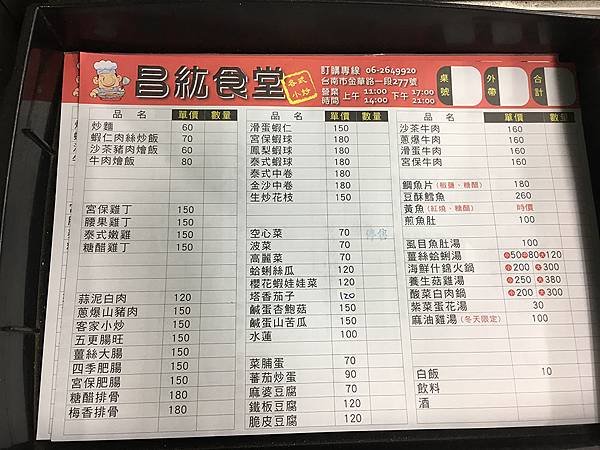 昌紘食堂
各式小炒
訂購專線 06-2649920
台南市金華路一段277號
營業時間 上午 11:00 14:00 下午 17:00 21:00
桌號
外帶
合計
品名 單價 數量
炒麵 60
蝦仁肉絲炒飯 70
沙茶豬肉燴飯 60
牛肉燴飯 80
宮保雞丁 150
腰果雞丁 150
泰式嫩雞 150
糖醋雞丁 150
蒜泥白肉 120
蔥爆山豬肉 150
客家小炒 150
五更腸旺 150
薑絲大腸 150
四季肥腸 150
宮保肥腸 150
糖醋排骨 180
梅香排骨 180
品名 單價 數量
滑蛋蝦仁 150
宮保蝦球 180
鳳梨蝦球 180
泰式蝦球 180
泰式中卷 180
金沙中卷 180
生炒花枝 150
空心菜 70 停售
菠菜 70
高麗菜 70
蛤蜊絲瓜 120
櫻花蝦娃娃菜 120
塔香茄子 120
鹹蛋杏鮑菇 150
鹹蛋山苦瓜 150
水蓮 100
菜脯蛋 70
蕃茄炒蛋 90
麻婆豆腐 70
鐵板豆腐 120
脆皮豆腐 120
品名 單價 數量
沙茶牛肉 160
蔥爆牛肉 160
滑蛋牛肉 160
宮保牛肉 160
鯛魚片(椒鹽、糖醋) 180
豆酥鱈魚 260
黃魚(紅燒、糖醋) 時價
煎魚肚 100
虱目魚肚湯 100
薑絲蛤蜊湯 小50中80大120
海鮮什錦火鍋 小200 大300
養生菇雞湯 小250 大380
酸菜白肉鍋 小200 大300
紫菜蛋花湯 30
麻油雞湯(冬天限定) 100
白飯 10
飲料
酒